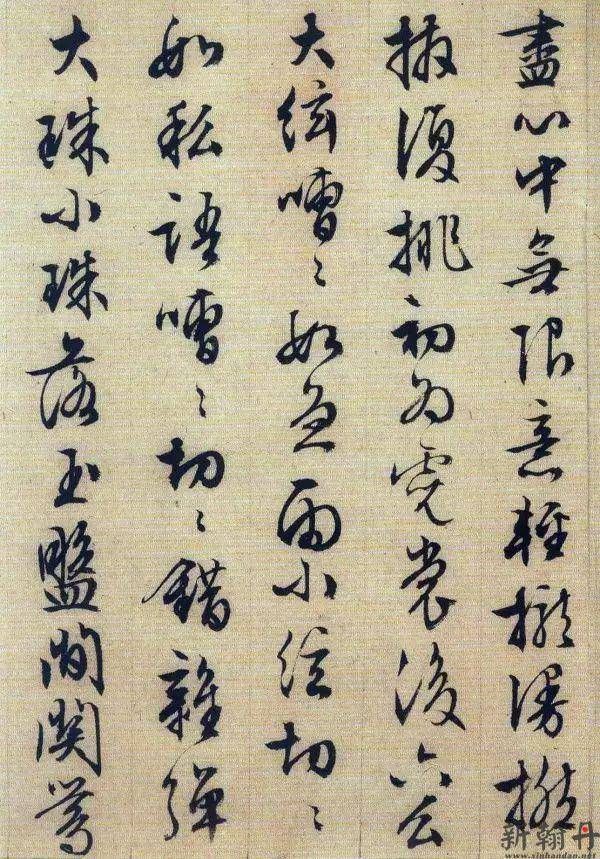 盡心中無限意輕攏漫撚
撥復挑初為霓裳後六么
大絃嘈〻如急雨小絃切〻
如私語嘈〻切〻錯雜彈
大珠小珠落玉盤間關鶯
新翰丹
www.xinhandan.net